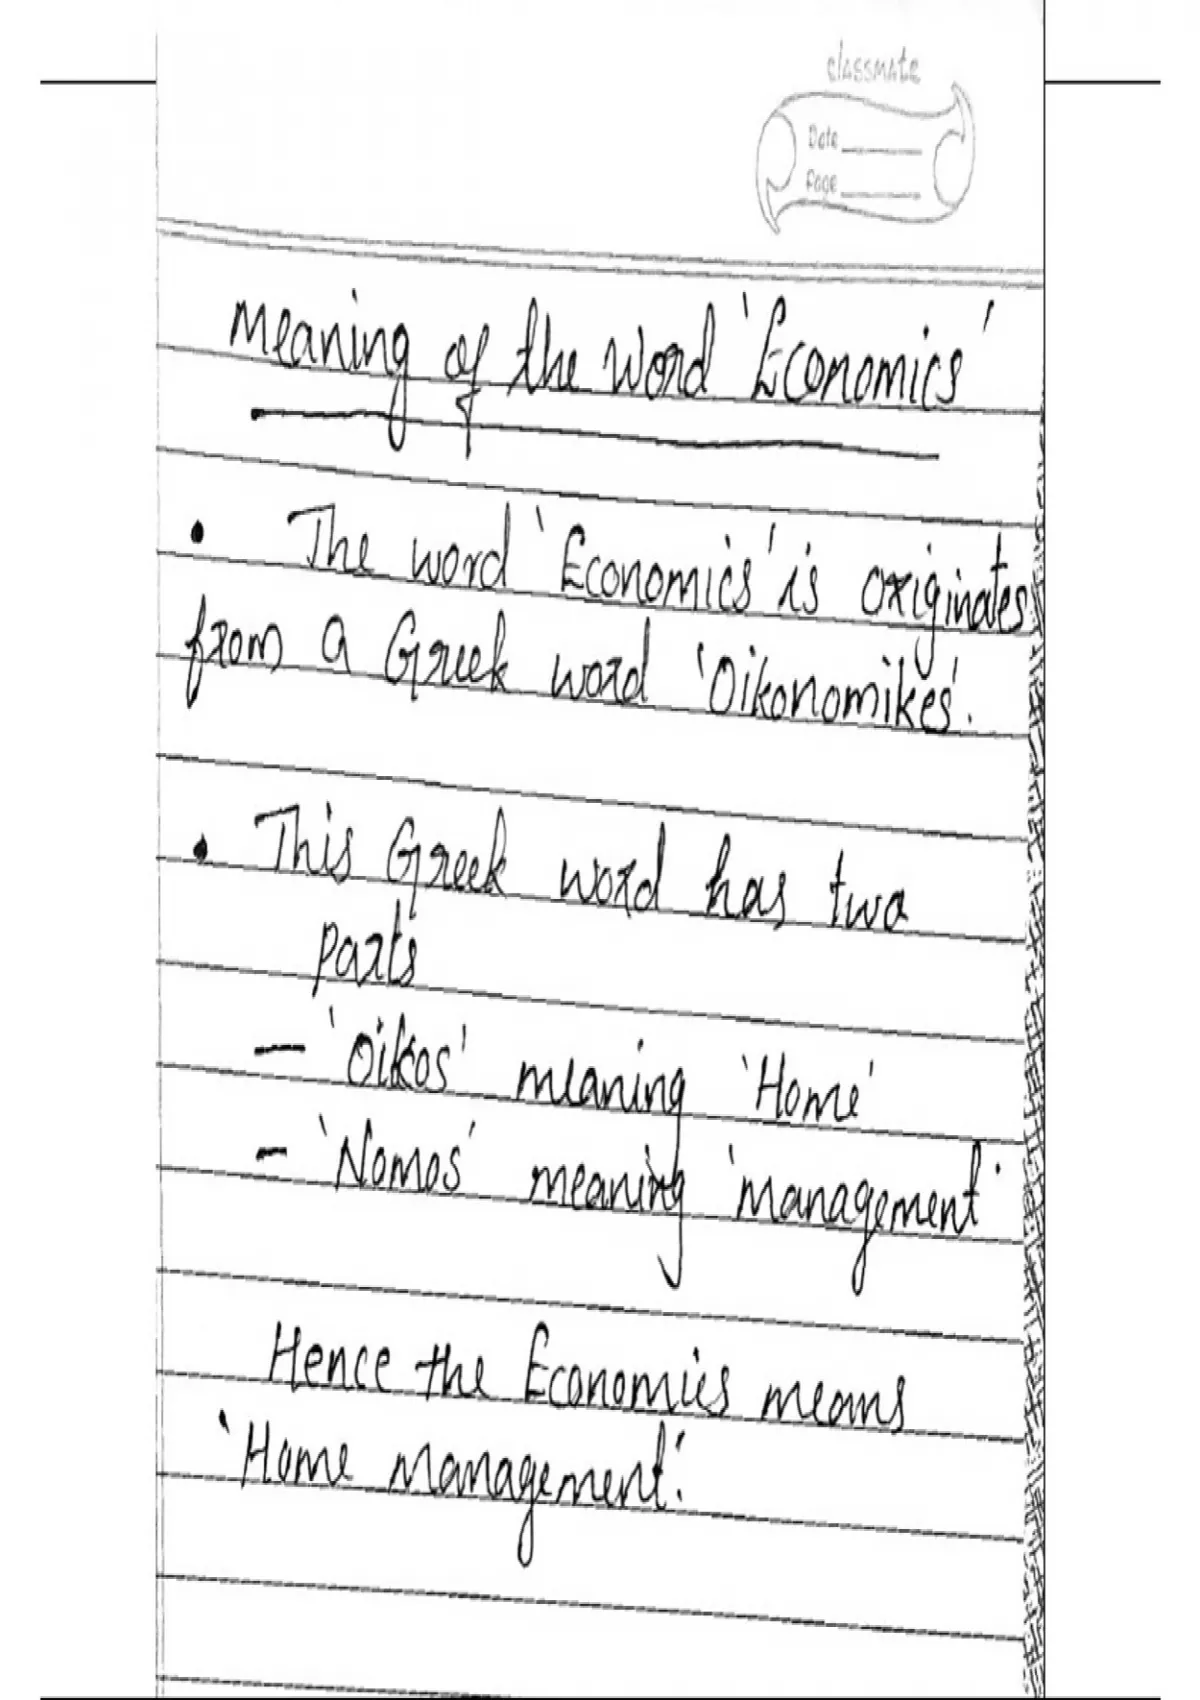 classmate
Date
Page
Meaning of the Word 'Economics'
• The word 'Economics' is originates
from a Greek word 'Oikonomikes'.
• This Greek word has two
parts
– 'Oikos' meaning 'Home'
– 'Nomos' meaning 'management'
Hence the Economics means
'Home management'.